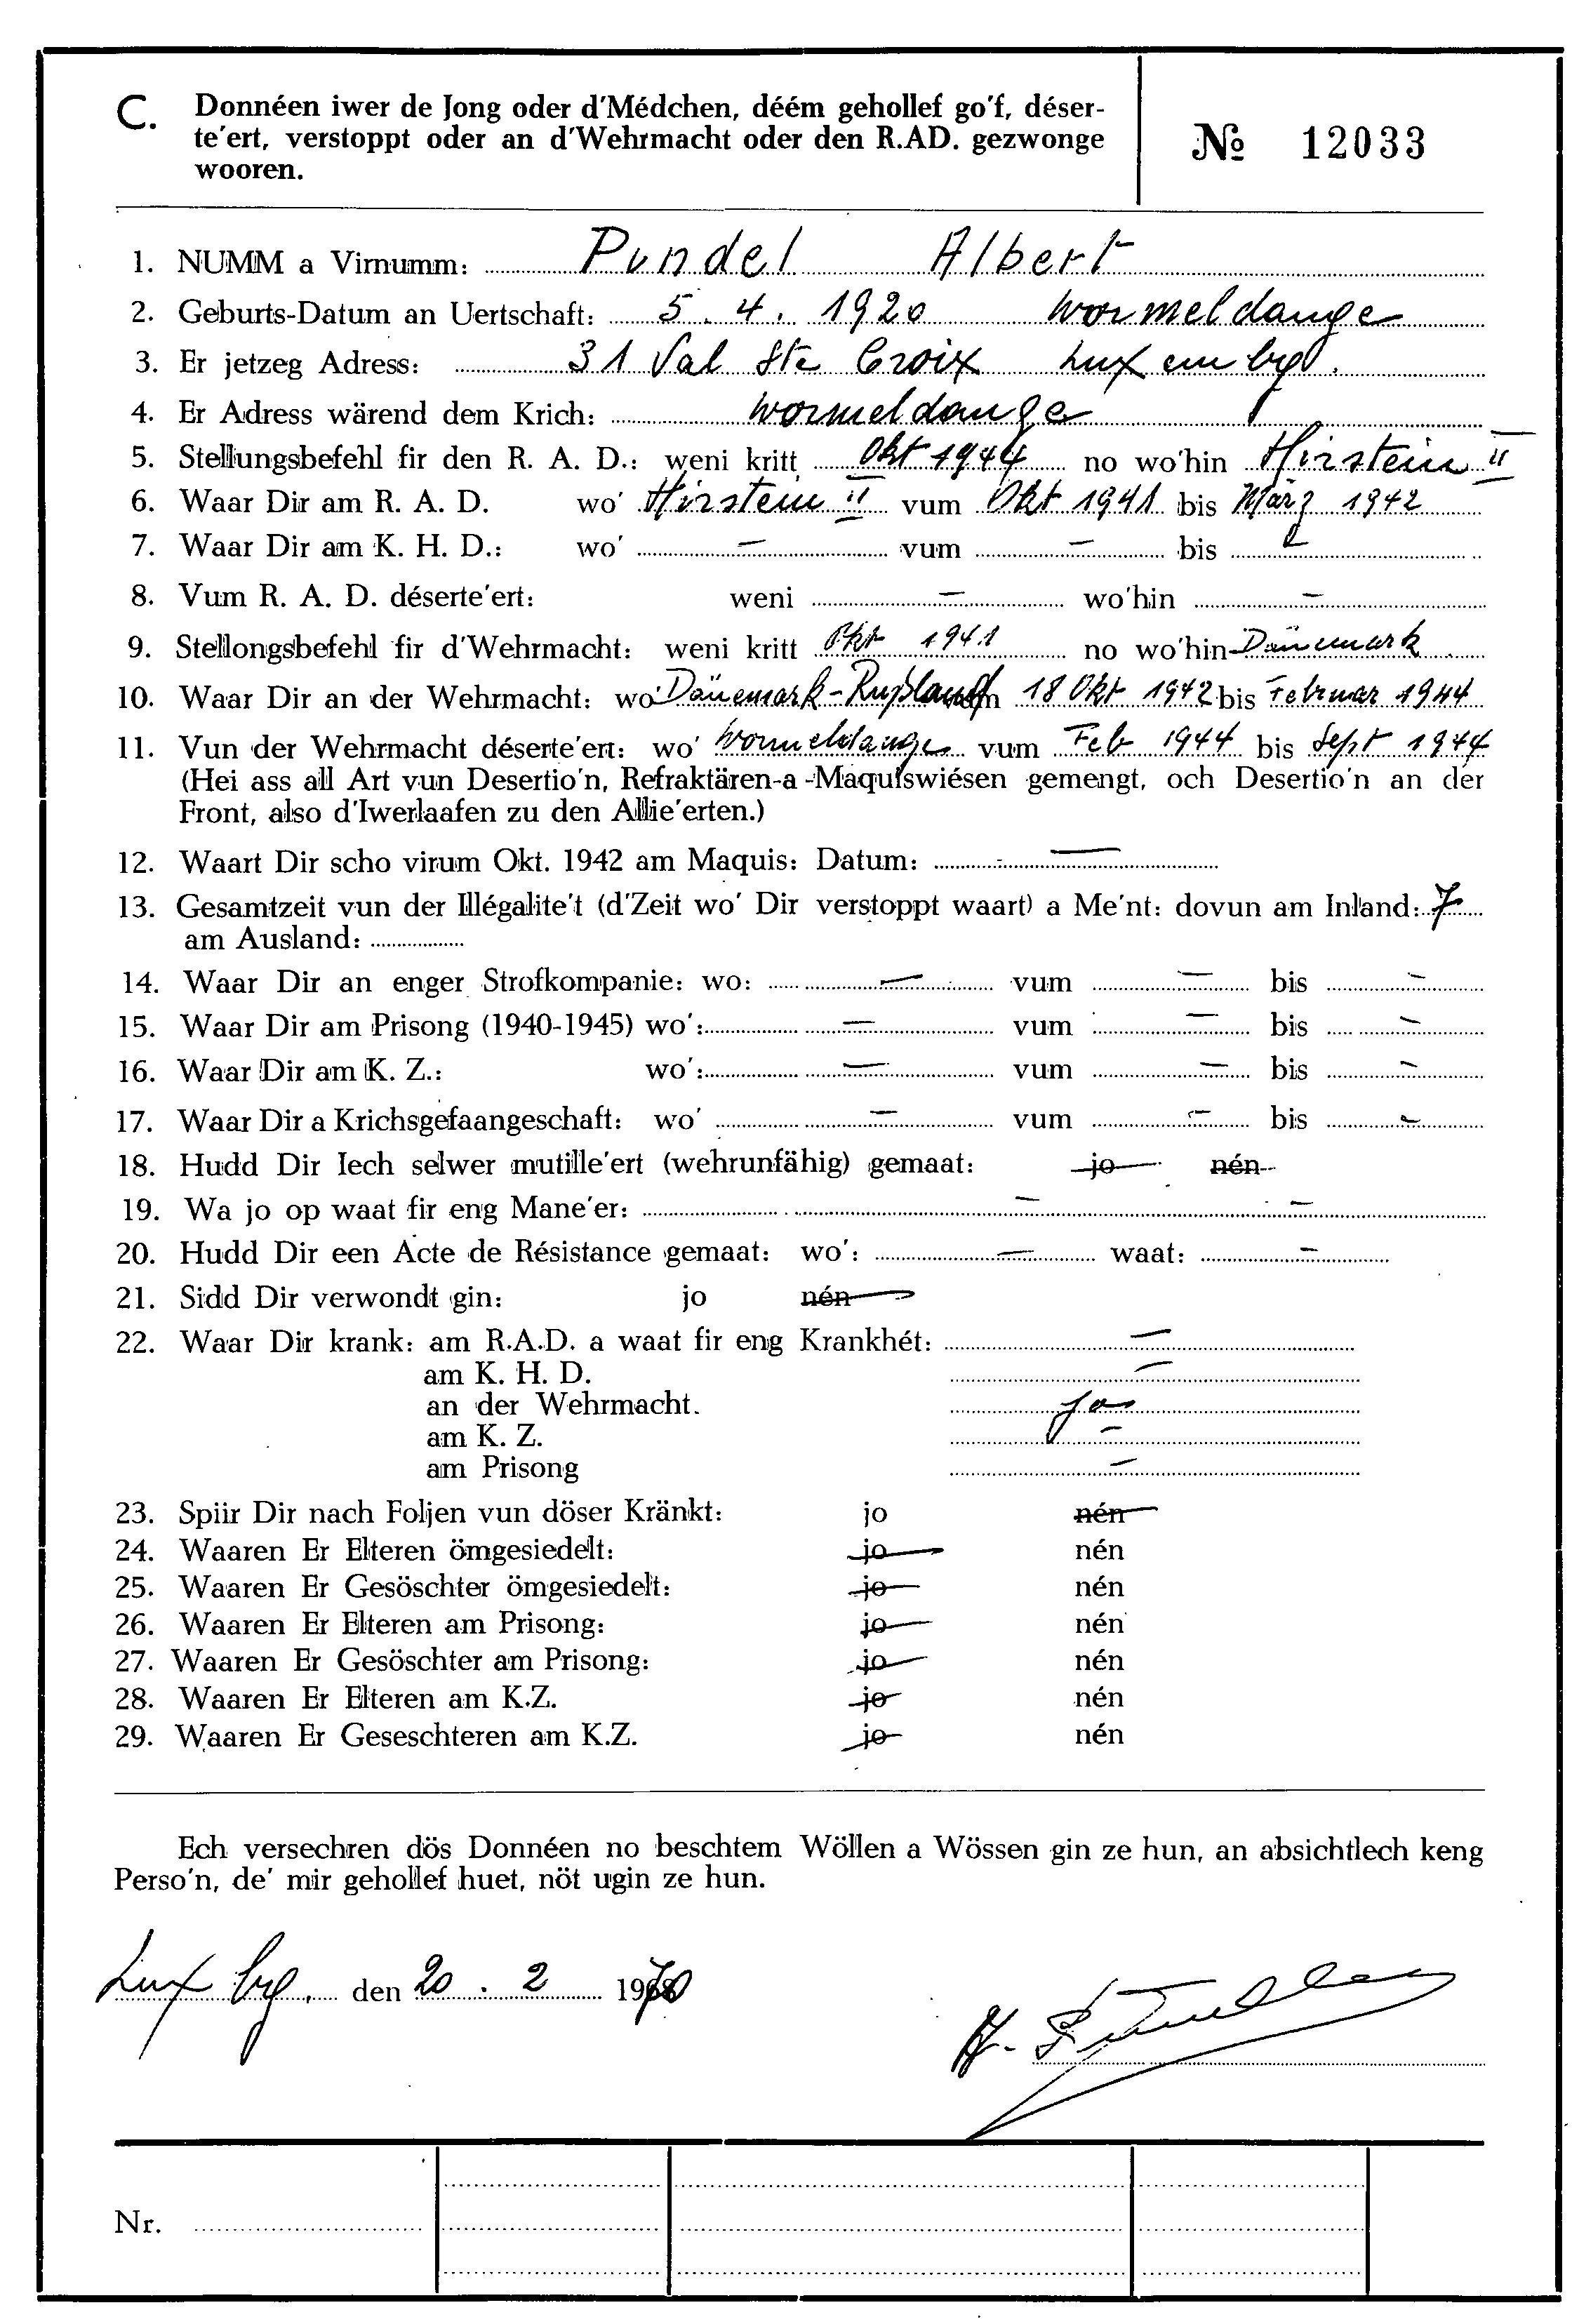 C. Donnéen iwer de Jong oder d'Médchen, déém gehollef go'f, déser-
te'ert, verstoppt oder an d'Wehrmacht oder den R.AD. gezwonge
wooren.
№ 12033
1. NUMM a Virnumm: Pundel Albert
2. Geburts-Datum an Uertschaft: 5. 4. 1920 Wormeldange
3. Er jetzeg Adress: 31 Val Ste Croix Luxembg.
4. Er Adress wärend dem Krich: Wormeldange
5. Stellungsbefehl fir den R. A. D.: weni kritt Okt 1944 no wo'hin Hirstein II
6. Waar Dir am R. A. D. wo' Hirstein II vum Okt 1941 bis März 1942
7. Waar Dir am K. H. D.: wo' — vum — bis —
8. Vum R. A. D. déserte'ert: weni — wo'hin —
9. Stellongsbefehl fir d'Wehrmacht: weni kritt Okt 1941 no wo'hin Dänemark
10. Waar Dir an der Wehrmacht: wo' Dänemark - Rußland 18 Okt 1942 bis Februar 1944
11. Vun der Wehrmacht déserte'ert: wo' Wormeldange vum Feb 1944 bis Sept 1944
(Hei ass all Art vun Desertio'n, Refraktären-a -Maquiswiésen gemengt, och Desertio'n an der
Front, also d'Iwerlaafen zu den Allie'erten.)
12. Waart Dir scho virum Okt. 1942 am Maquis: Datum: —
13. Gesamtzeit vun der Illégalite't (d'Zeit wo' Dir verstoppt waart) a Me'nt: dovun am Inland: 7
am Ausland:
14. Waar Dir an enger Strofkompanie: wo: — vum — bis —
15. Waar Dir am Prisong (1940-1945) wo': — vum — bis —
16. Waar Dir am K. Z.: wo': — vum — bis —
17. Waar Dir a Krichsgefaangeschaft: wo' — vum — bis —
18. Hudd Dir Iech selwer mutille'ert (wehrunfähig) gemaat: jo nén
19. Wa jo op waat fir eng Mane'er: — —
20. Hudd Dir een Acte de Résistance gemaat: wo': — waat: —
21. Sidd Dir verwondt gin: jo nén
22. Waar Dir krank: am R.A.D. a waat fir eng Krankhét: —
am K. H. D. —
an der Wehrmacht. jo
am K. Z. —
am Prisong —
23. Spiir Dir nach Foljen vun döser Kränkt: jo nén
24. Waaren Er Elteren ömgesiedelt: jo nén
25. Waaren Er Gesöschter ömgesiedelt: jo nén
26. Waaren Er Elteren am Prisong: jo nén
27. Waaren Er Gesöschter am Prisong: jo nén
28. Waaren Er Elteren am K.Z. jo nén
29. Waaren Er Geseschteren am K.Z. jo nén
Ech versechren dös Donnéen no beschtem Wöllen a Wössen gin ze hun, an absichtlech keng
Perso'n, de' mir gehollef huet, nöt ugin ze hun.
Luxbg. den 20. 2 1970
Nr.